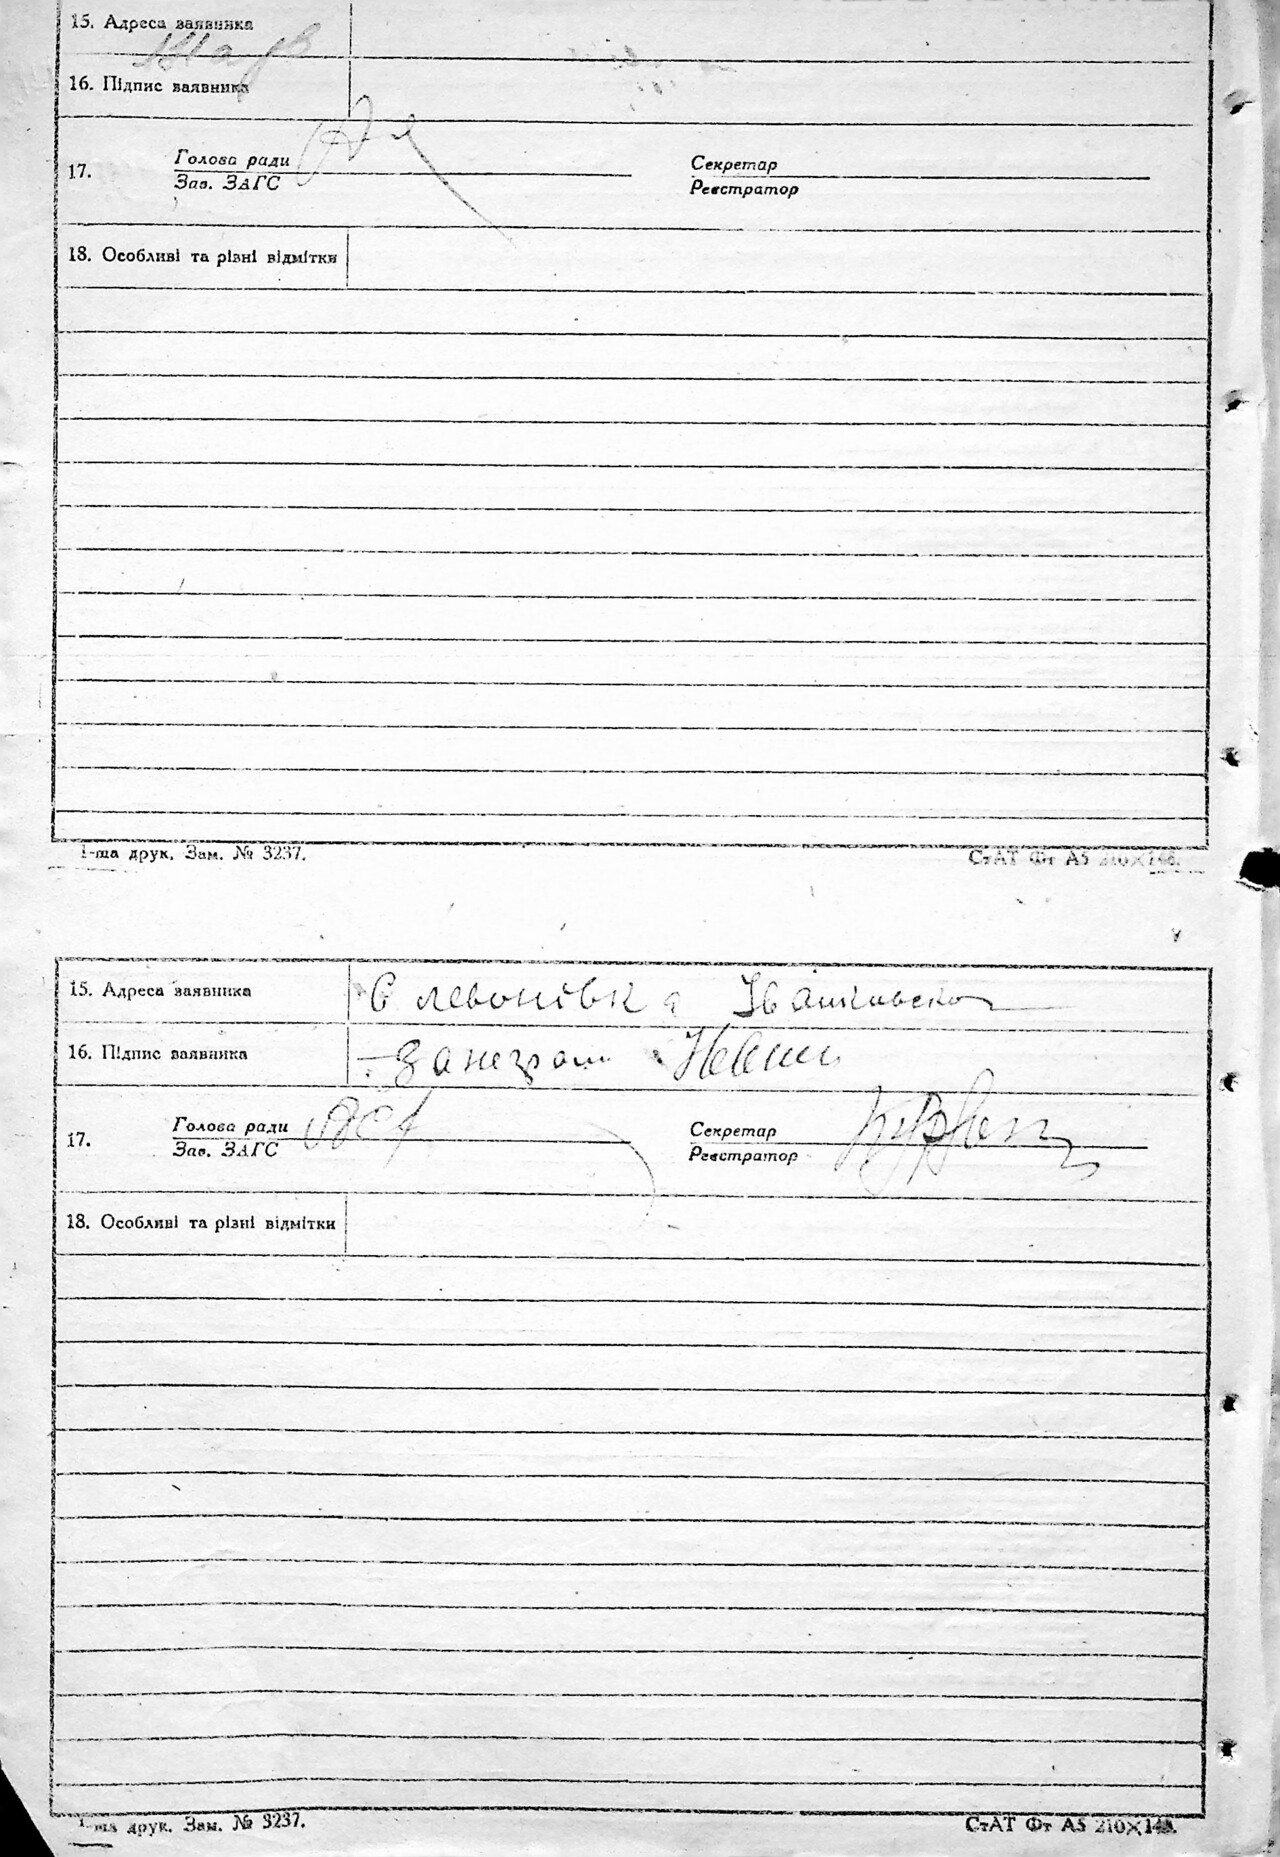 15. Адреса заявника
16. Підпис заявника
17. Голова ради Секретар
Зав. ЗАГС Реєстратор
18. Особливі та різні відмітки
1-ша друк. Зам. № 3237.
СтАТ Фт А5 210×148.
15. Адреса заявника С левонівка
16. Підпис заявника
17. Голова ради Секретар
Зав. ЗАГС Реєстратор
18. Особливі та різні відмітки
1-ша друк. Зам. № 3237.
СтАТ Фт А5 210×148.